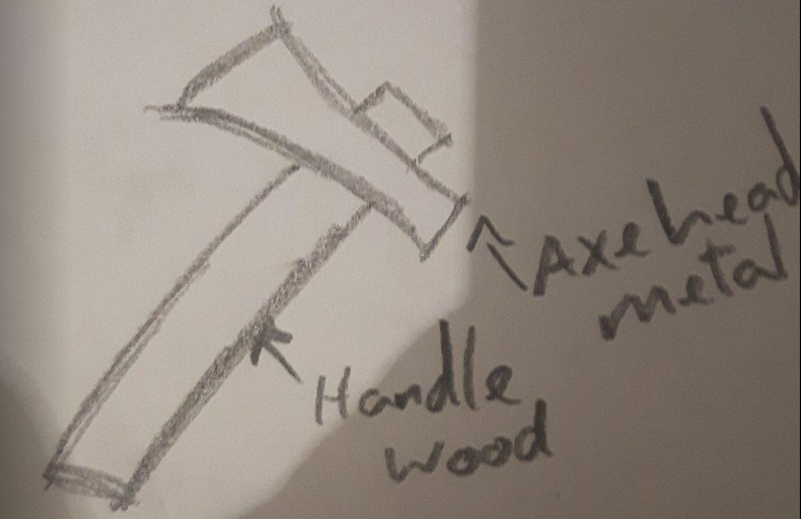 Axe head
metal
Handle
wood